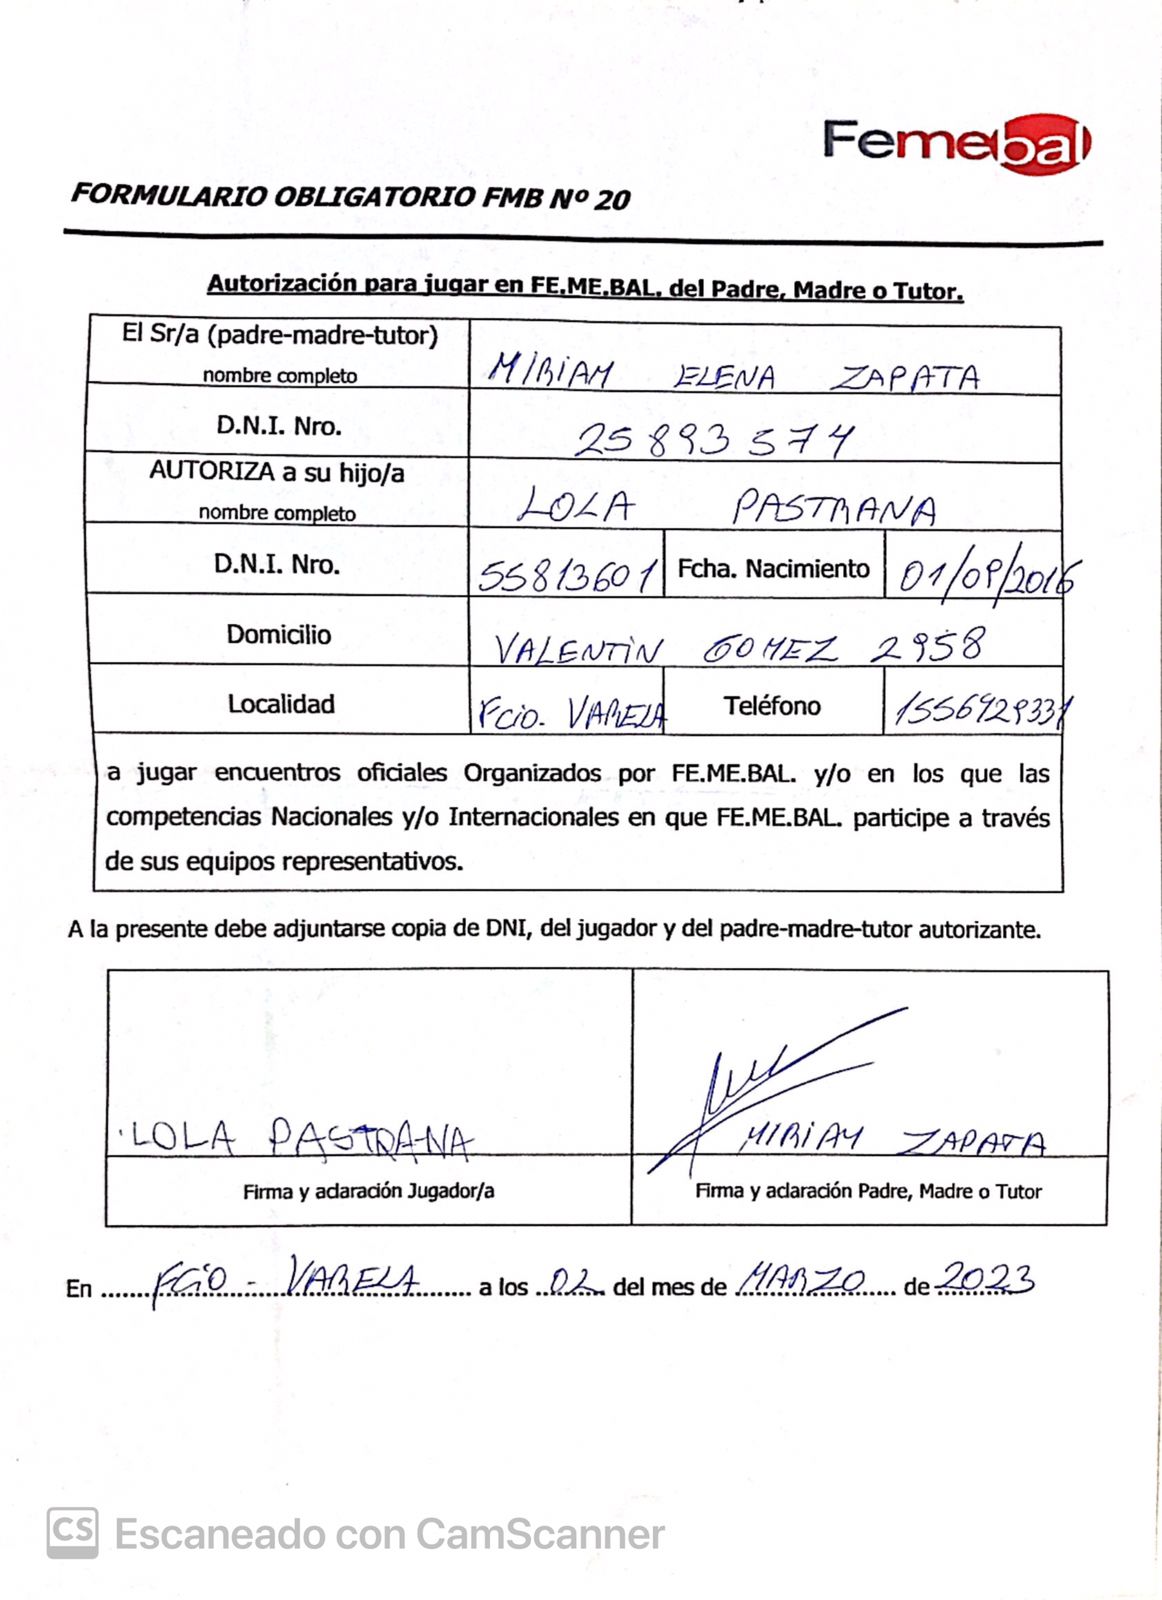 Femebal
FORMULARIO OBLIGATORIO FMB Nº 20
Autorización para jugar en FE.ME.BAL. del Padre, Madre o Tutor.
El Sr/a (padre-madre-tutor)
nombre completo
MIRIAM ELENA ZAPATA
D.N.I. Nro.
25893574
AUTORIZA a su hijo/a
nombre completo
LOLA PASTRANA
D.N.I. Nro.
55813601
Fcha. Nacimiento
01/09/2016
Domicilio
VALENTIN GOMEZ 2958
Localidad
Fcio. VARELA
Teléfono
1556929331
a jugar encuentros oficiales Organizados por FE.ME.BAL. y/o en los que las
competencias Nacionales y/o Internacionales en que FE.ME.BAL. participe a través
de sus equipos representativos.
A la presente debe adjuntarse copia de DNI, del jugador y del padre-madre-tutor autorizante.
LOLA PASTRANA
MIRIAM ZAPATA
Firma y aclaración Jugador/a
Firma y aclaración Padre, Madre o Tutor
En FCIO - VARELA a los 02 del mes de MARZO de 2023
CS Escaneado con CamScanner